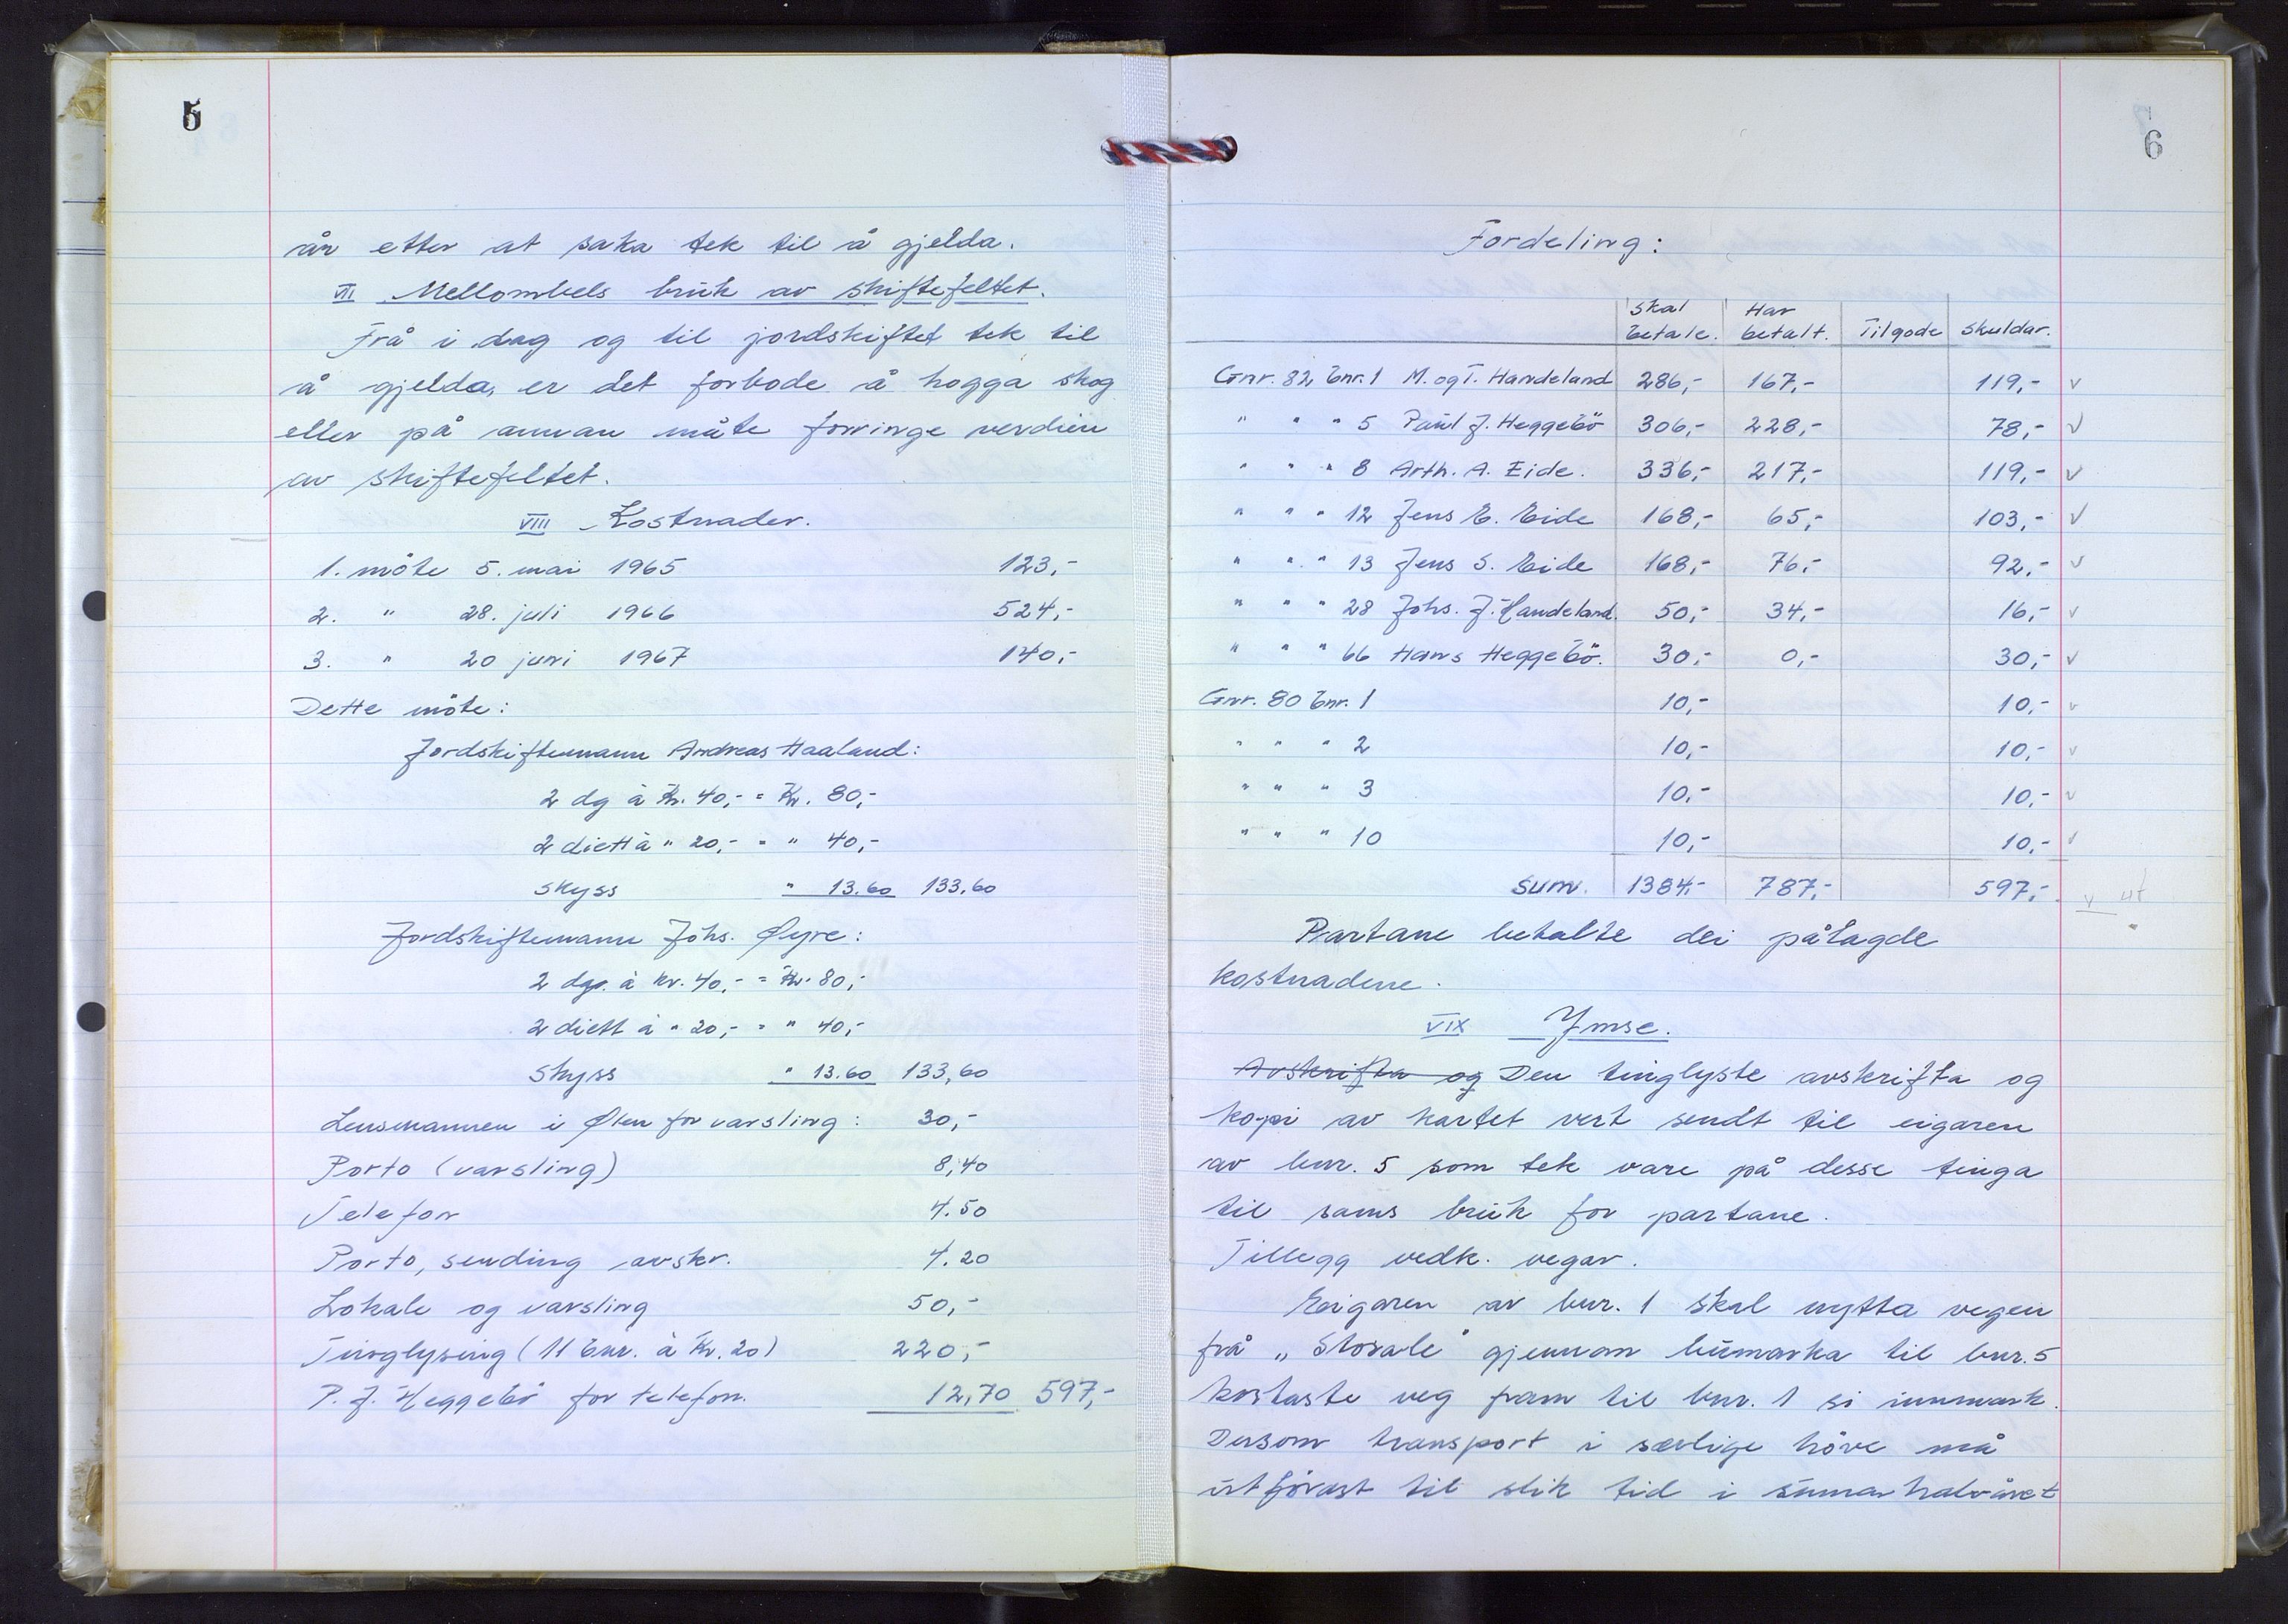 5
år etter at saka tek til å gjelda.
VII Mellombels bruk av skiftefeltet.
Frå i dag og til jordskiftet tek til
å gjelda, er det forbode å hogga skog
eller på annan måte forringe verdien
av skiftefeltet.
VIII Kostnader.
1. möte 5. mai 1965 123,-
2. " 28. juli 1966 524,-
3. " 20 juni 1967 140,-
Dette möte:
Jordskiftemann Andreas Haaland:
2 dg à Kr. 40,- = Kr. 80,-
2 diett à " 20,- = " 40,-
Skyss " 13.60 133,60
Jordskiftemann Johs. Øyre:
2 dgr. à kr. 40,- = Kr. 80,-
2 diett à " 20,- = " 40,-
Skyss " 13.60 133,60
Lensmannen i Ølen for varsling: 30,-
Porto (varsling) 8,40
Telefon 4.50
Porto, sending avskr. 4.20
Lokale og varsling 50,-
Tinglysing (11 bnr. à Kr. 20) 220,-
P. J. Heggebö for telefon. 12,70 597,-
6
Fordeling:
Skal betale. Har betalt. Tilgode Skuldar.
Gnr. 82 bnr. 1 M. og T. Handeland 286,- 167,- 119,- v
" " " 5 Paul J. Heggebö 306,- 228,- 78,- v
" " " 8 Arth. A. Eide. 336,- 217,- 119,- v
" " " 12 Jens E. Eide 168,- 65,- 103,- v
" " " 13 Jens S. Eide 168,- 76,- 92,- v
" " " 28 Johs. J. Handeland. 50,- 34,- 16,- v
" " " 66 Hans Heggebö. 30,- 0,- 30,- v
Gnr. 80 bnr. 1 10,- 10,- v
" " " 2 10,- 10,- v
" " " 3 10,- 10,- v
" " " 10 10,- 10,- v
Sum. 1384,- 787,- 597,- v
Partane betalte dei pålagde
kostnadene.
VIX Ymse.
Avskrifta og Den tinglyste avskrifta og
kopi av kartet vert sendt til eigaren
av bnr. 5 som tek vare på desse tinga
til sams bruk for partane.
Tillegg vedk. vegar.
Eigaren av bnr. 1 skal nytta vegen
frå „Storale" gjennom bumarka til bnr. 5
kortaste veg fram til bnr. 1 si innmark.
Dersom transport i særlige höve må
utförast til slik tid i sumarhalvåret